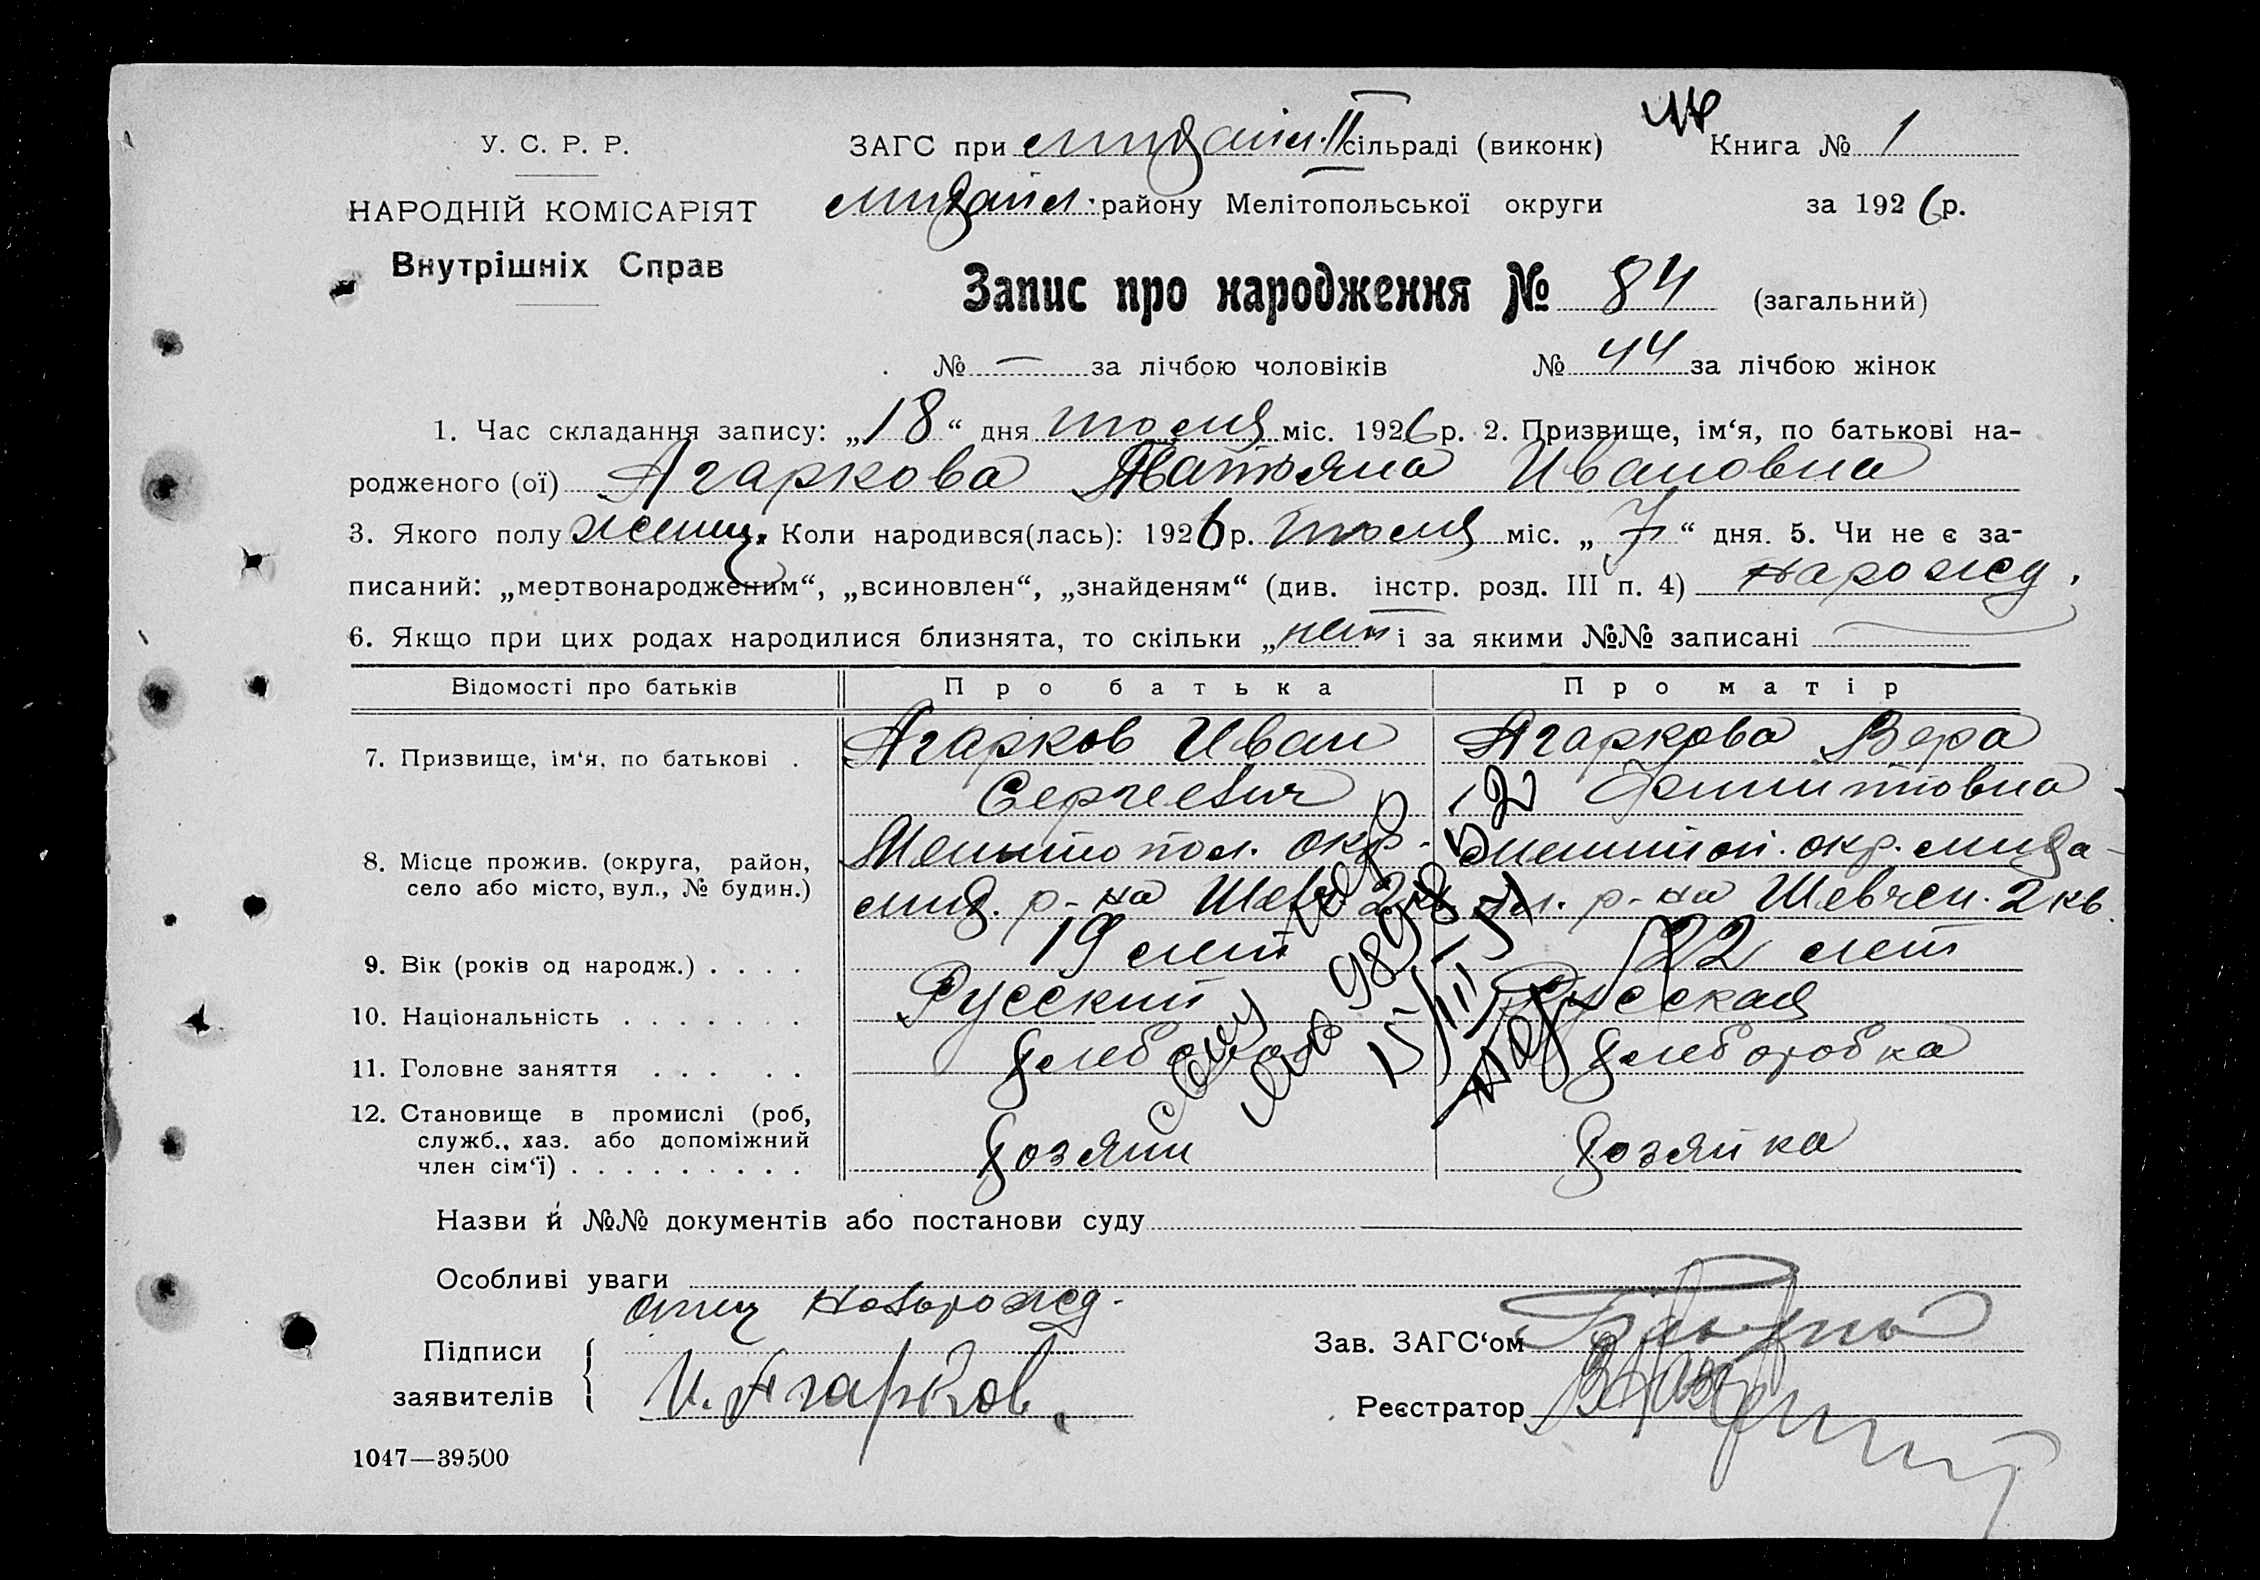 У. С. Р. Р.
НАРОДНІЙ КОМІСАРІЯТ
Внутрішніх Справ
ЗАГС при михайл. II сільраді (виконк)
Книга № 1
михайл. району Мелітопольської округи
за 1926 р.
Запис про народження № 84 (загальний)
№ — за лічбою чоловіків № 44 за лічбою жінок
1. Час складання запису: „18“ дня июля міс. 1926 р. 2. Призвище, ім‘я, по батькові на-
родженого (ої) Агаркова Татьяна Ивановна
3. Якого полу женщ. Коли народився(лась): 1926 р. июля міс. „7“ дня. 5. Чи не є за-
писаний: „мертвонародженим“, „всиновлен“, „знайденям“ (див. інстр. розд. III п. 4) нарожд.
6. Якщо при цих родах народилися близнята, то скільки „нет і за якими №№ записані —
Відомості про батьків Про батька Про матір
7. Призвище, ім‘я, по батькові . Агарков Иван Агаркова Вера
Сергеевич Филиповна
8. Місце прожив. (округа, район, Мелитопол. окр. мелитоп. окр. миха-
село або місто, вул., № будин.) мих. р-на Шевч 2 кв йл. р-на Шевчен. 2 кв.
9. Вік (років од народж.) . . . . 19 лет 22 лет
10. Національність . . . . . . . Русский Русская
11. Головне заняття . . . . . хлебороб хлеборобка
12. Становище в промислі (роб,
служб., хаз. або допоміжний
член сім‘ї) . . . . . . . . . хозяин хозяйка
15/III 51
Назви й №№ документів або постанови суду
Особливі уваги
отец новорожд.
Підписи
заявителів
И. Агарков.
Зав. ЗАГС‘ом
Реєстратор
1047—39500